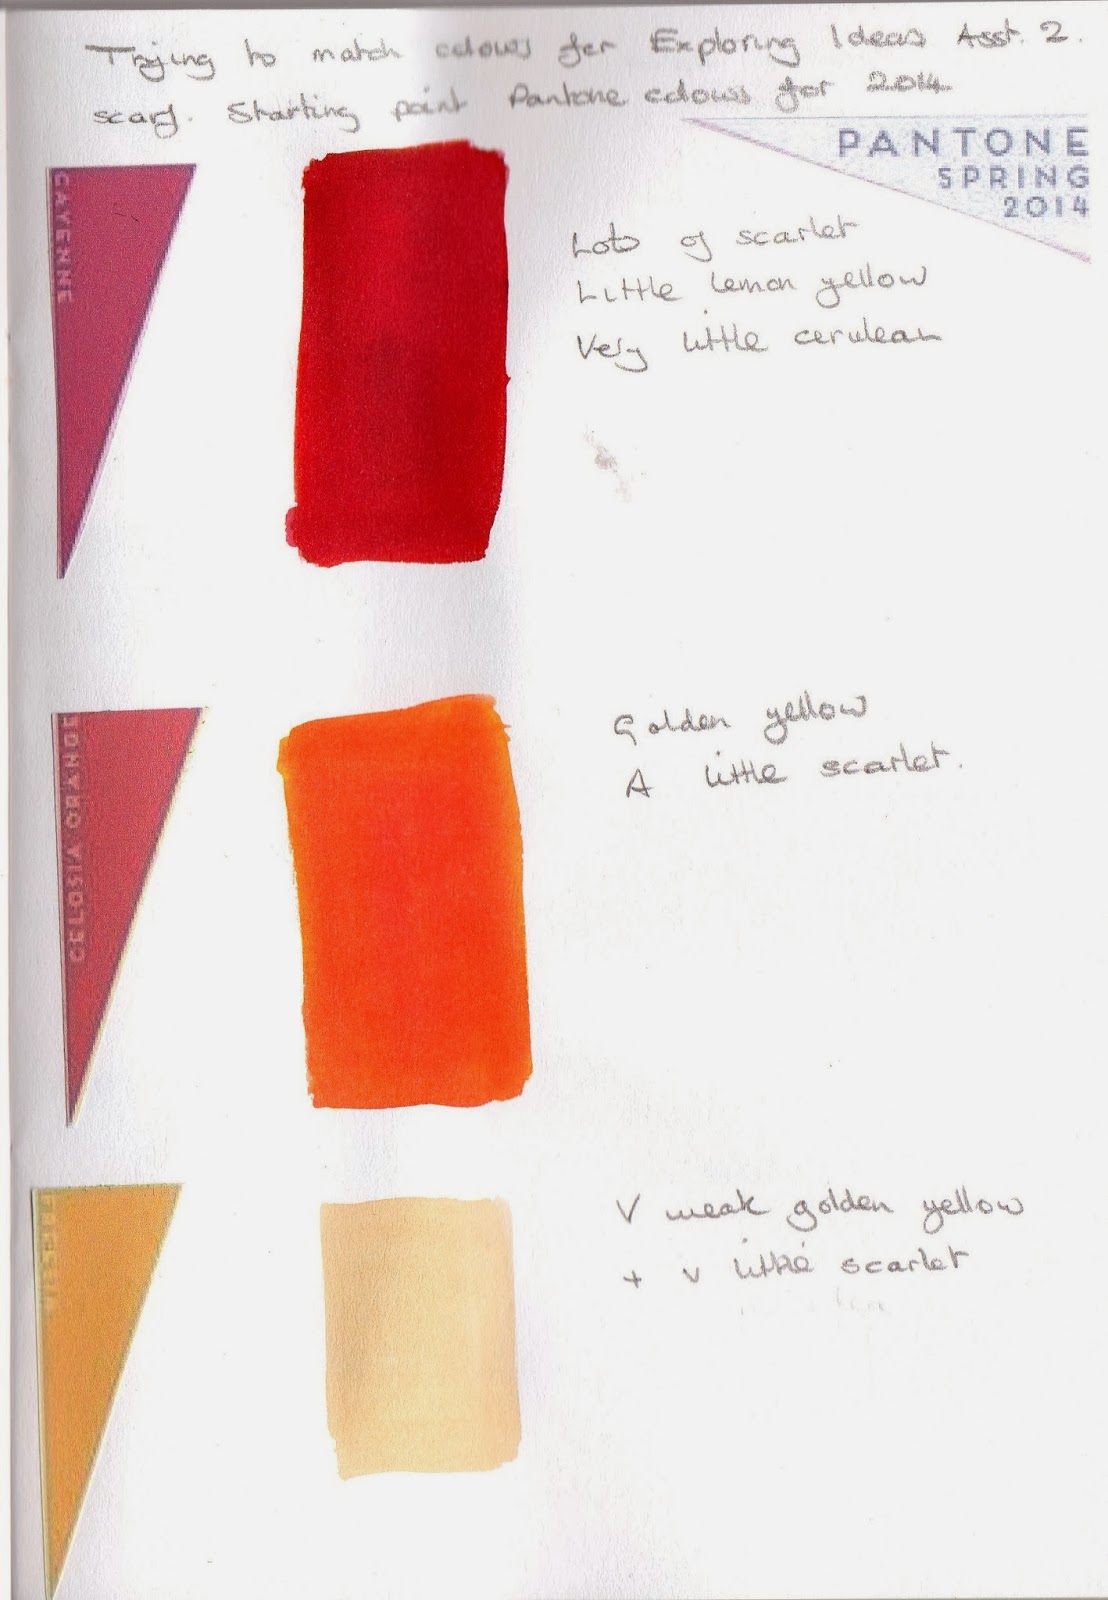 Trying to match colours for Exploring Ideas Asst. 2.
scarf. Starting point Pantone colours for 2014
PANTONE
SPRING
2014
CAYENNE
Lots of scarlet
Little lemon yellow
Very little cerulean
CELOSIA ORANGE
Golden yellow
A little scarlet.
FREESIA
V weak golden yellow
+ v little scarlet